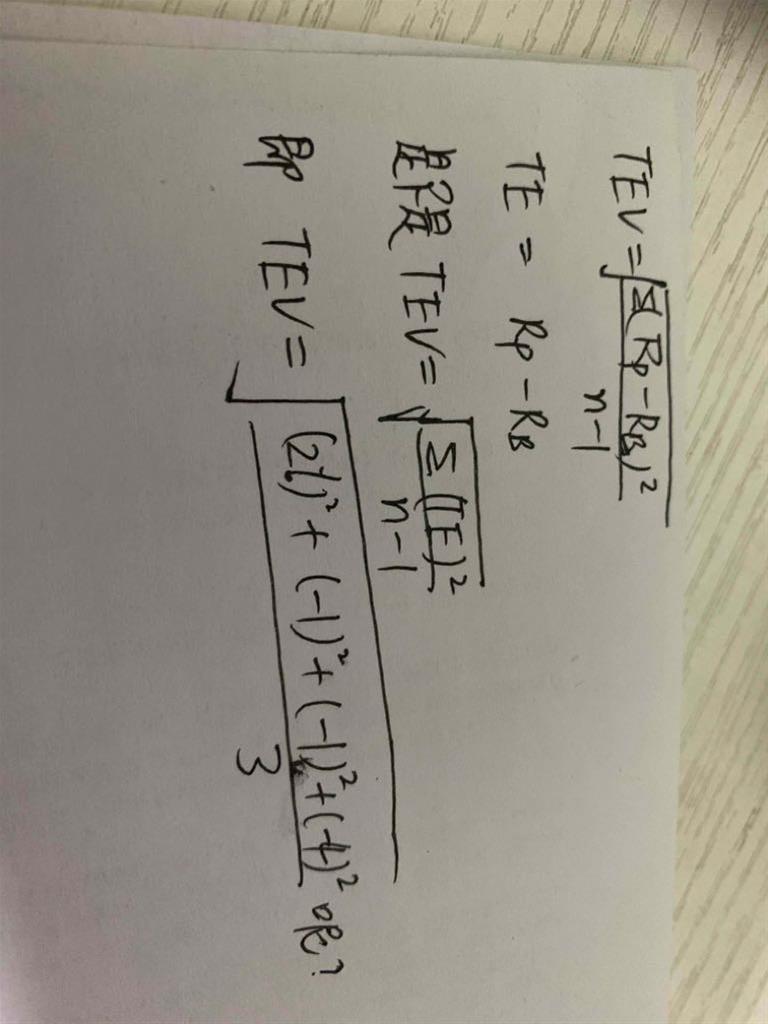 TEV = √(Σ(Rp - RB)² / n-1)
TE = Rp - RB
是不是 TEV = √(Σ(TE)² / n-1)
即 TEV = √(()² + (-1)² + (-1)² + (-4)² / 3) ok?